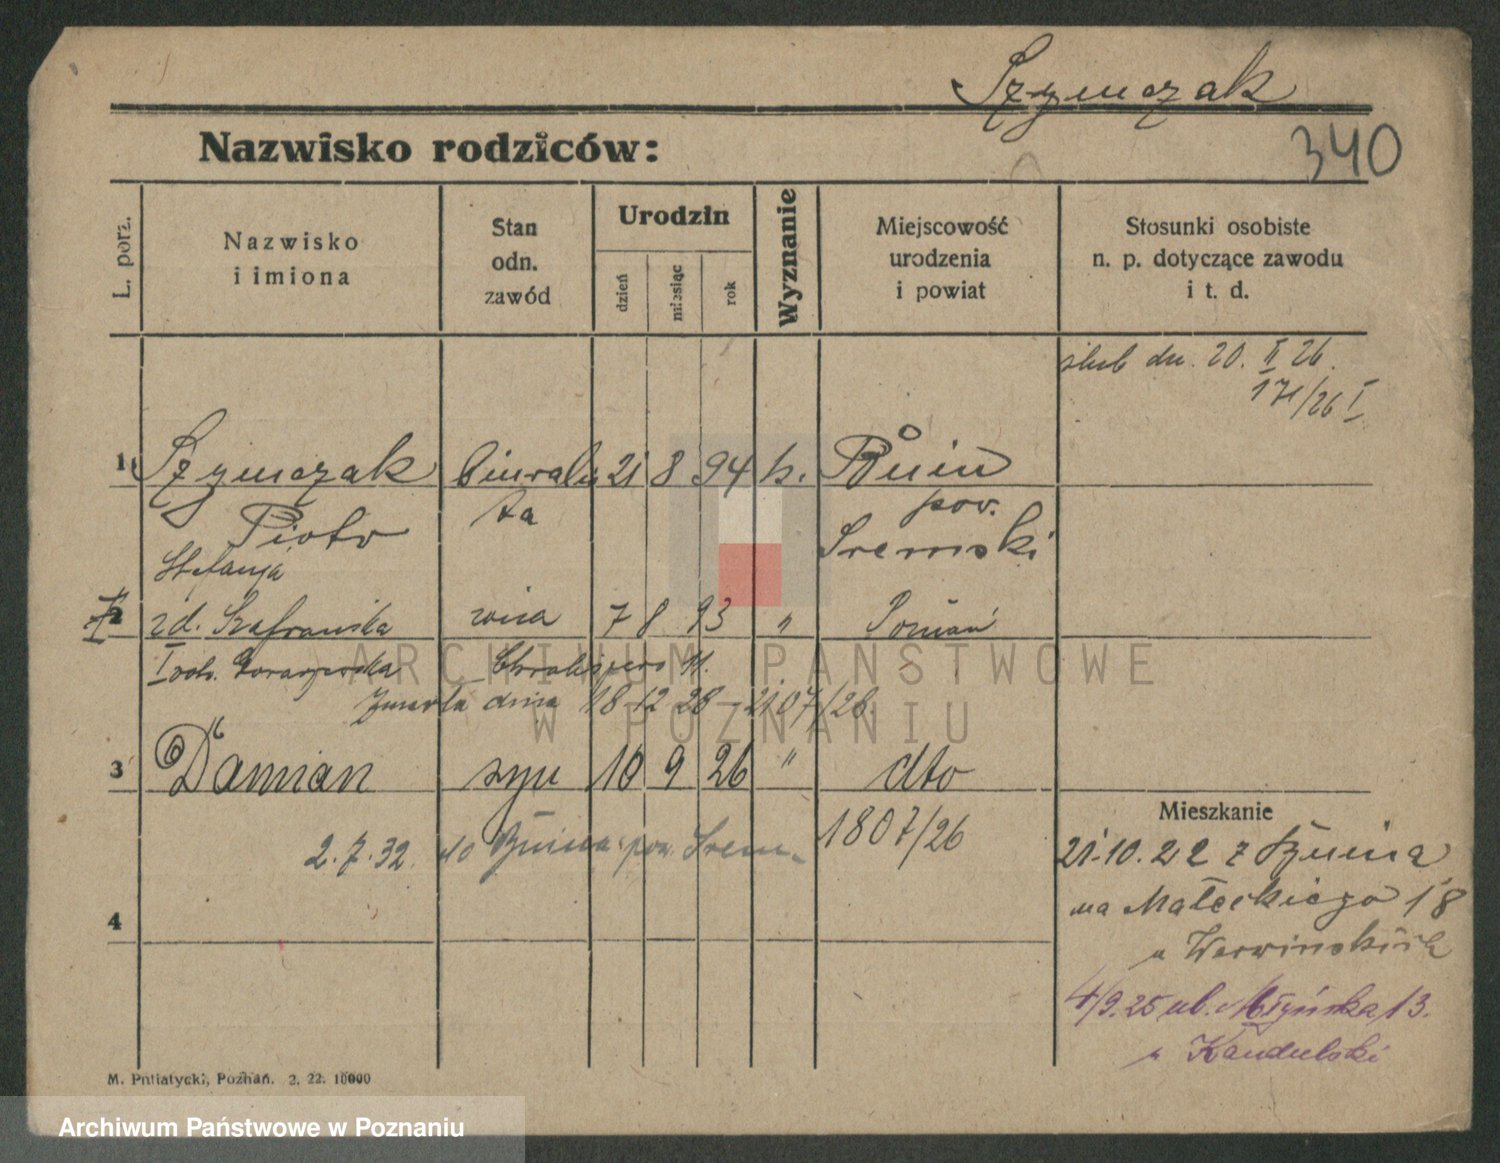 Szymczak
340
Nazwisko rodziców:
L. porz.
Nazwisko
i imiona
Stan
odn.
zawód
Urodzin
dzień
miesiąc
rok
Wyznanie
Miejscowość
urodzenia
i powiat
Stosunki osobiste
n. p. dotyczące zawodu
i t. d.
ślub dn. 20. II 26.
171/26 I
1 Szymczak biurali 21 8 94 k.
Piotr sta pow.
Śremski
Stefanja
2 zd. Szafrańska żona 7 8 93 " Poznań
I voto
Zmarła dnia 18 12 28 - 2107/28
3 Damian syn 10 9 26 " dto
1807/26
2.7.32. do pow. Śrem
4
Mieszkanie
21.10.22 z
na Małeckiego 18
u
4/9.25 ul. Młyńska 13.
u Kandulski
M. Putiatycki, Poznań. 2. 22. 10000
ARCHIWUM PAŃSTWOWE
W POZNANIU
Archiwum Państwowe w Poznaniu